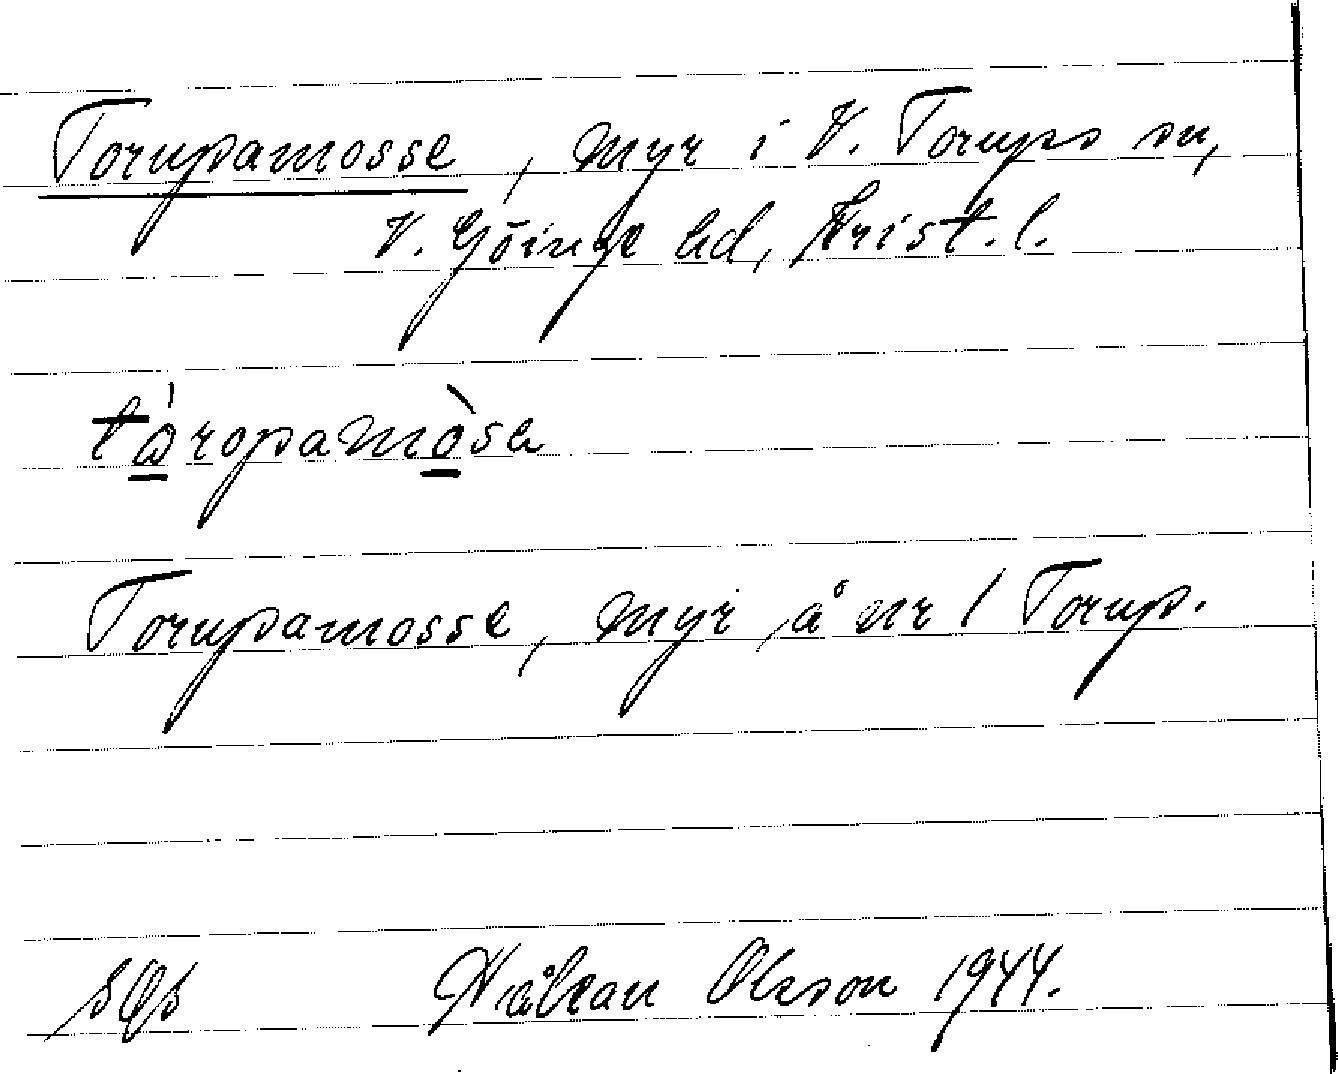 Torupamosse, myr i V. Torups sn,
V. Göinge hd, Krist. l.
tåropamòsa
Torupamosse, myr, å nr 1 Torup.
Håkan Olsson 1944.